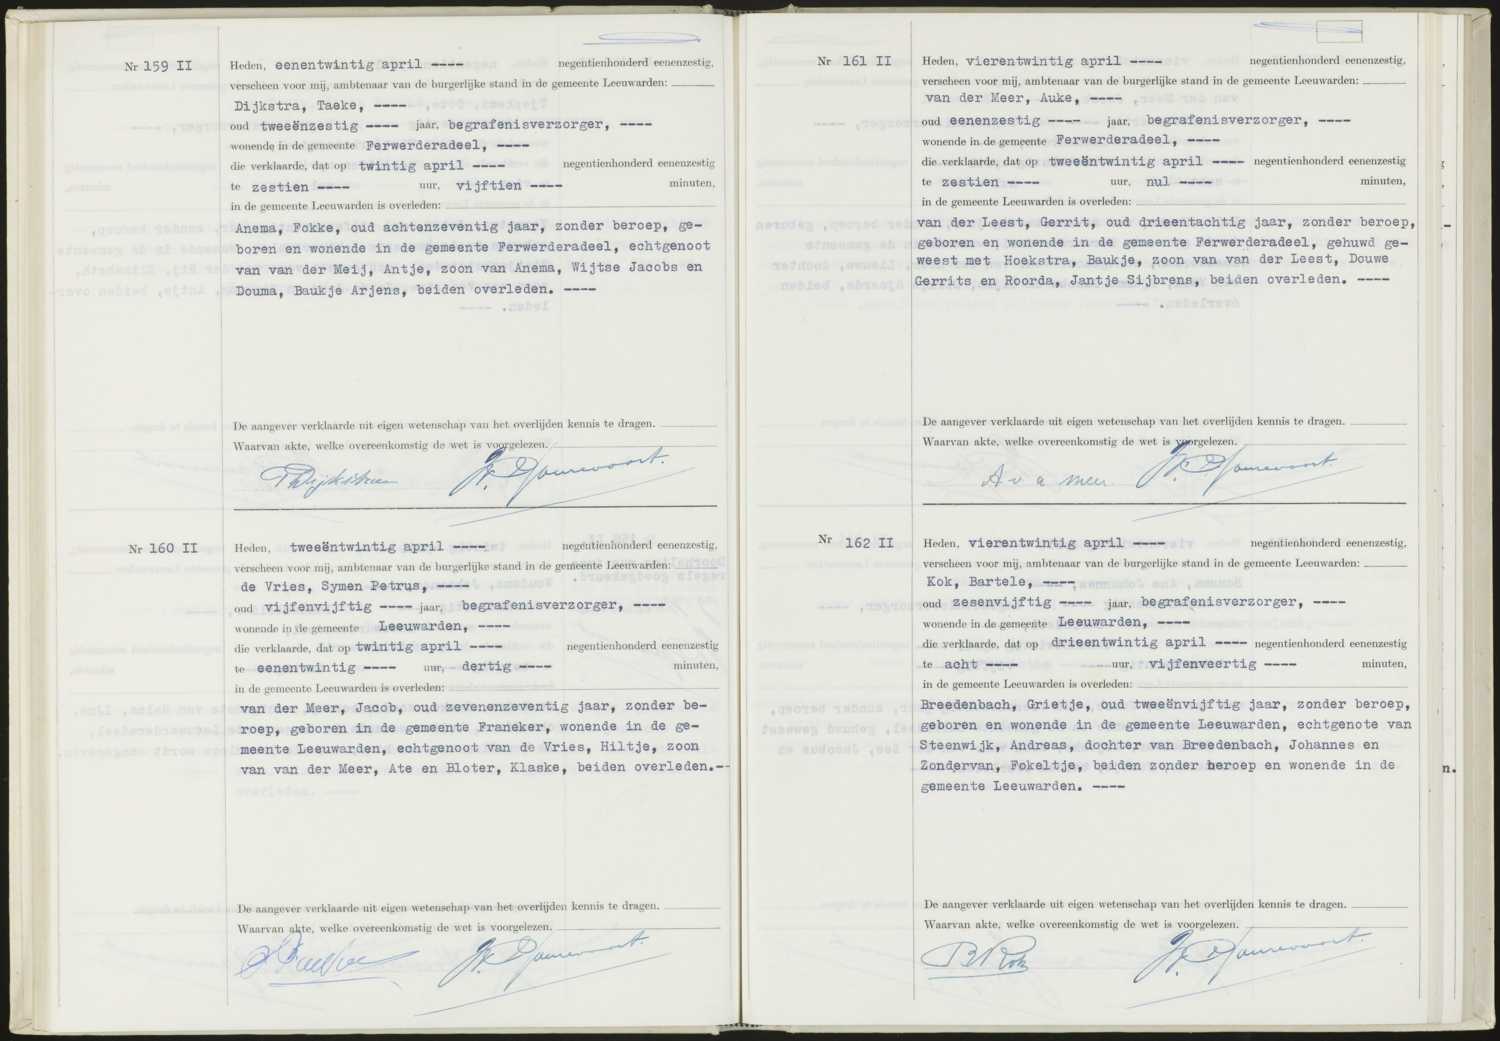 Nr 159 II
Heden, eenentwintig april ---- negentienhonderd eenenzestig,
verscheen voor mij, ambtenaar van de burgerlijke stand in de gemeente Leeuwarden:
Dijkstra, Taeke, ----
oud tweeënzestig ---- jaar, begrafenisverzorger, ----
wonende in de gemeente Ferwerderadeel, ----
die verklaarde, dat op twintig april ---- negentienhonderd eenenzestig
te zestien ---- uur, vijftien ---- minuten,
in de gemeente Leeuwarden is overleden:
Anema, Fokke, oud achtenzeventig jaar, zonder beroep, ge-
boren en wonende in de gemeente Ferwerderadeel, echtgenoot
van van der Meij, Antje, zoon van Anema, Wijtse Jacobs en
Douma, Baukje Arjens, beiden overleden. ----
De aangever verklaarde uit eigen wetenschap van het overlijden kennis te dragen.
Waarvan akte, welke overeenkomstig de wet is voorgelezen.
Nr 160 II
Heden, tweeëntwintig april ---- negentienhonderd eenenzestig,
verscheen voor mij, ambtenaar van de burgerlijke stand in de gemeente Leeuwarden:
de Vries, Symen Petrus, ----
oud vijfenvijftig ---- jaar, begrafenisverzorger, ----
wonende in de gemeente Leeuwarden, ----
die verklaarde, dat op twintig april ---- negentienhonderd eenenzestig
te eenentwintig ---- uur, dertig ---- minuten,
in de gemeente Leeuwarden is overleden:
van der Meer, Jacob, oud zevenenzeventig jaar, zonder be-
roep, geboren in de gemeente Franeker, wonende in de ge-
meente Leeuwarden, echtgenoot van de Vries, Hiltje, zoon
van van der Meer, Ate en Bloter, Klaske, beiden overleden.--
De aangever verklaarde uit eigen wetenschap van het overlijden kennis te dragen.
Waarvan akte, welke overeenkomstig de wet is voorgelezen.
Nr 161 II
Heden, vierentwintig april ---- negentienhonderd eenenzestig,
verscheen voor mij, ambtenaar van de burgerlijke stand in de gemeente Leeuwarden:
van der Meer, Auke, ----
oud eenenzestig ---- jaar, begrafenisverzorger, ----
wonende in de gemeente Ferwerderadeel, ----
die verklaarde, dat op tweeëntwintig april ---- negentienhonderd eenenzestig
te zestien ---- uur, nul ---- minuten,
in de gemeente Leeuwarden is overleden:
van der Leest, Gerrit, oud drieentachtig jaar, zonder beroep,
geboren en wonende in de gemeente Ferwerderadeel, gehuwd ge-
weest met Hoekstra, Baukje, zoon van van der Leest, Douwe
Gerrits en Roorda, Jantje Sijbrens, beiden overleden. ----
De aangever verklaarde uit eigen wetenschap van het overlijden kennis te dragen.
Waarvan akte, welke overeenkomstig de wet is voorgelezen.
A v d Meer
Nr 162 II
Heden, vierentwintig april ---- negentienhonderd eenenzestig,
verscheen voor mij, ambtenaar van de burgerlijke stand in de gemeente Leeuwarden:
Kok, Bartele, ----
oud zesenvijftig ---- jaar, begrafenisverzorger, ----
wonende in de gemeente Leeuwarden, ----
die verklaarde, dat op drieentwintig april ---- negentienhonderd eenenzestig
te acht ---- uur, vijfenveertig ---- minuten,
in de gemeente Leeuwarden is overleden:
Breedenbach, Grietje, oud tweeënvijftig jaar, zonder beroep,
geboren en wonende in de gemeente Leeuwarden, echtgenote van
Steenwijk, Andreas, dochter van Breedenbach, Johannes en
Zondervan, Fokeltje, beiden zonder beroep en wonende in de
gemeente Leeuwarden. ----
De aangever verklaarde uit eigen wetenschap van het overlijden kennis te dragen.
Waarvan akte, welke overeenkomstig de wet is voorgelezen.
B Kok